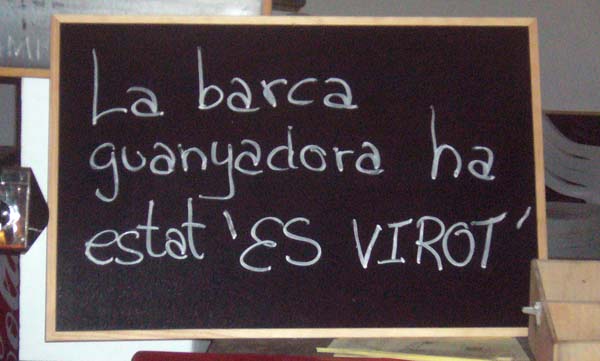 La barca
guanyadora ha
estat 'ES VIROT'